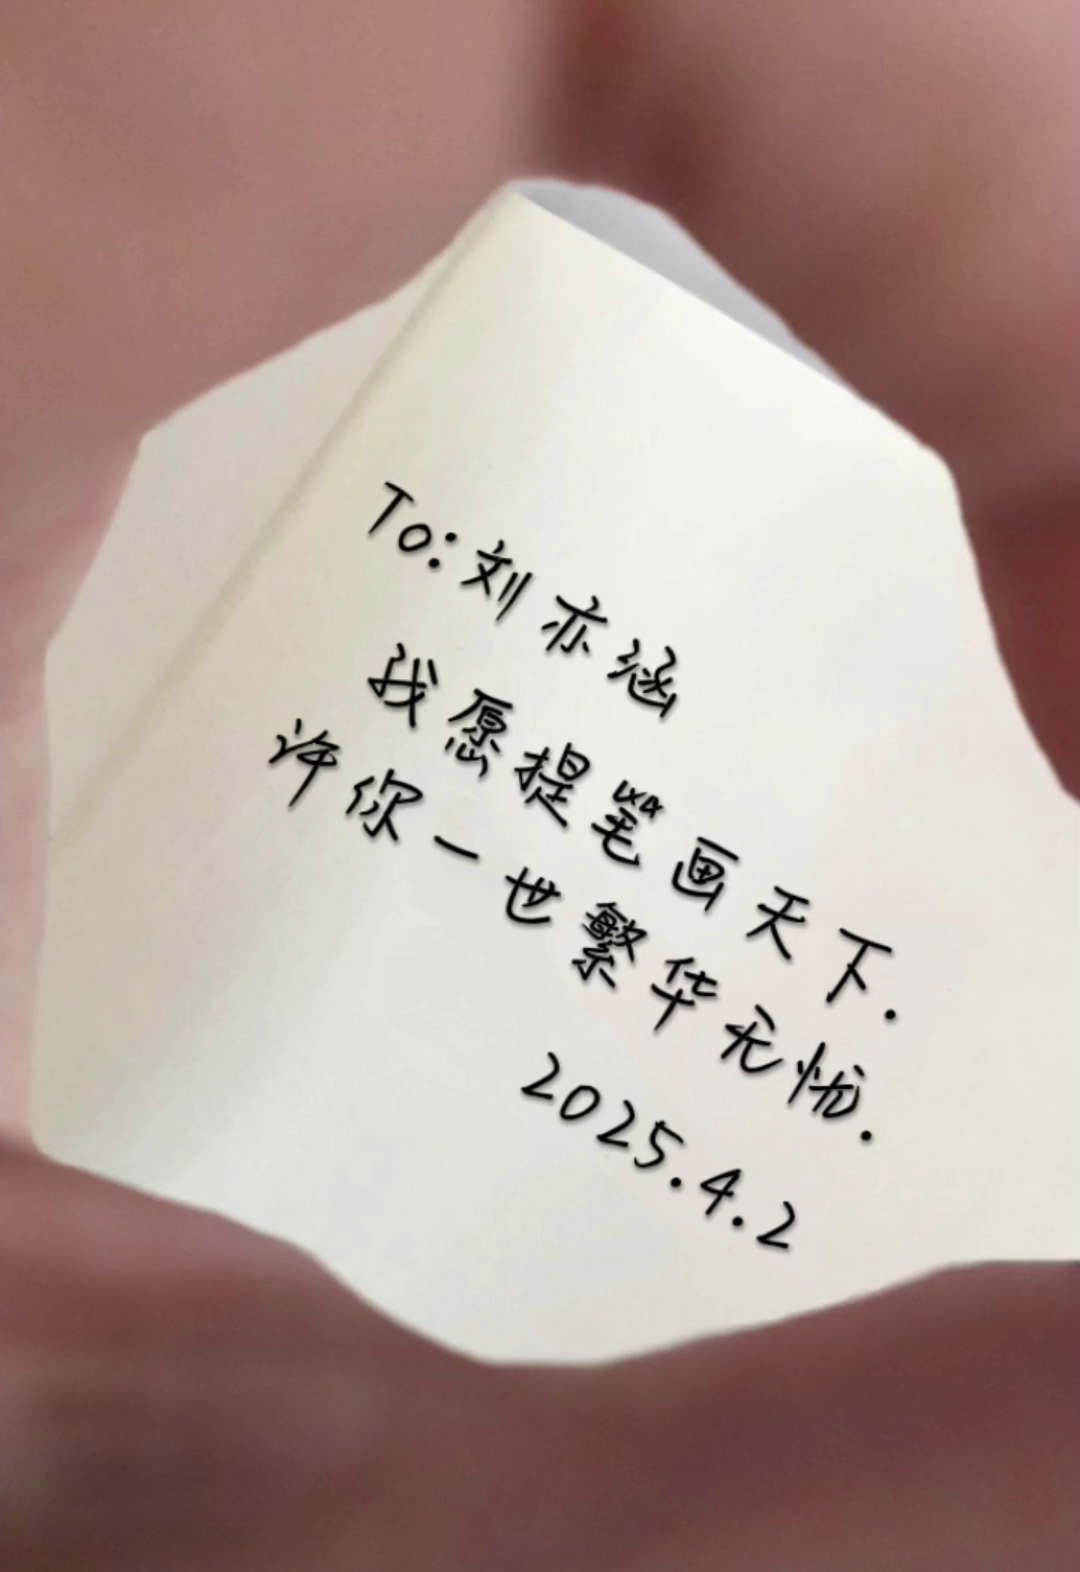 To:刘亦涵
我愿提笔画天下.
许你一世繁华无忧.
2025.4.2